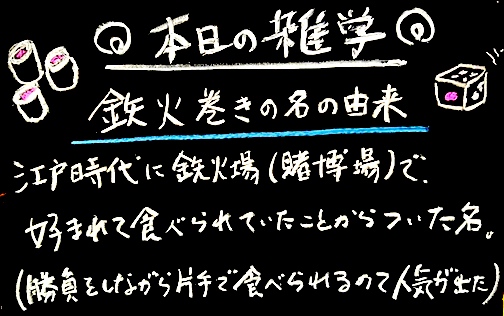 本日の雑学
鉄火巻きの名の由来
江戸時代に鉄火場(賭博場)で、
好まれて食べられていたことからついた名。
(勝負をしながら片手で食べられるので人気が出た)